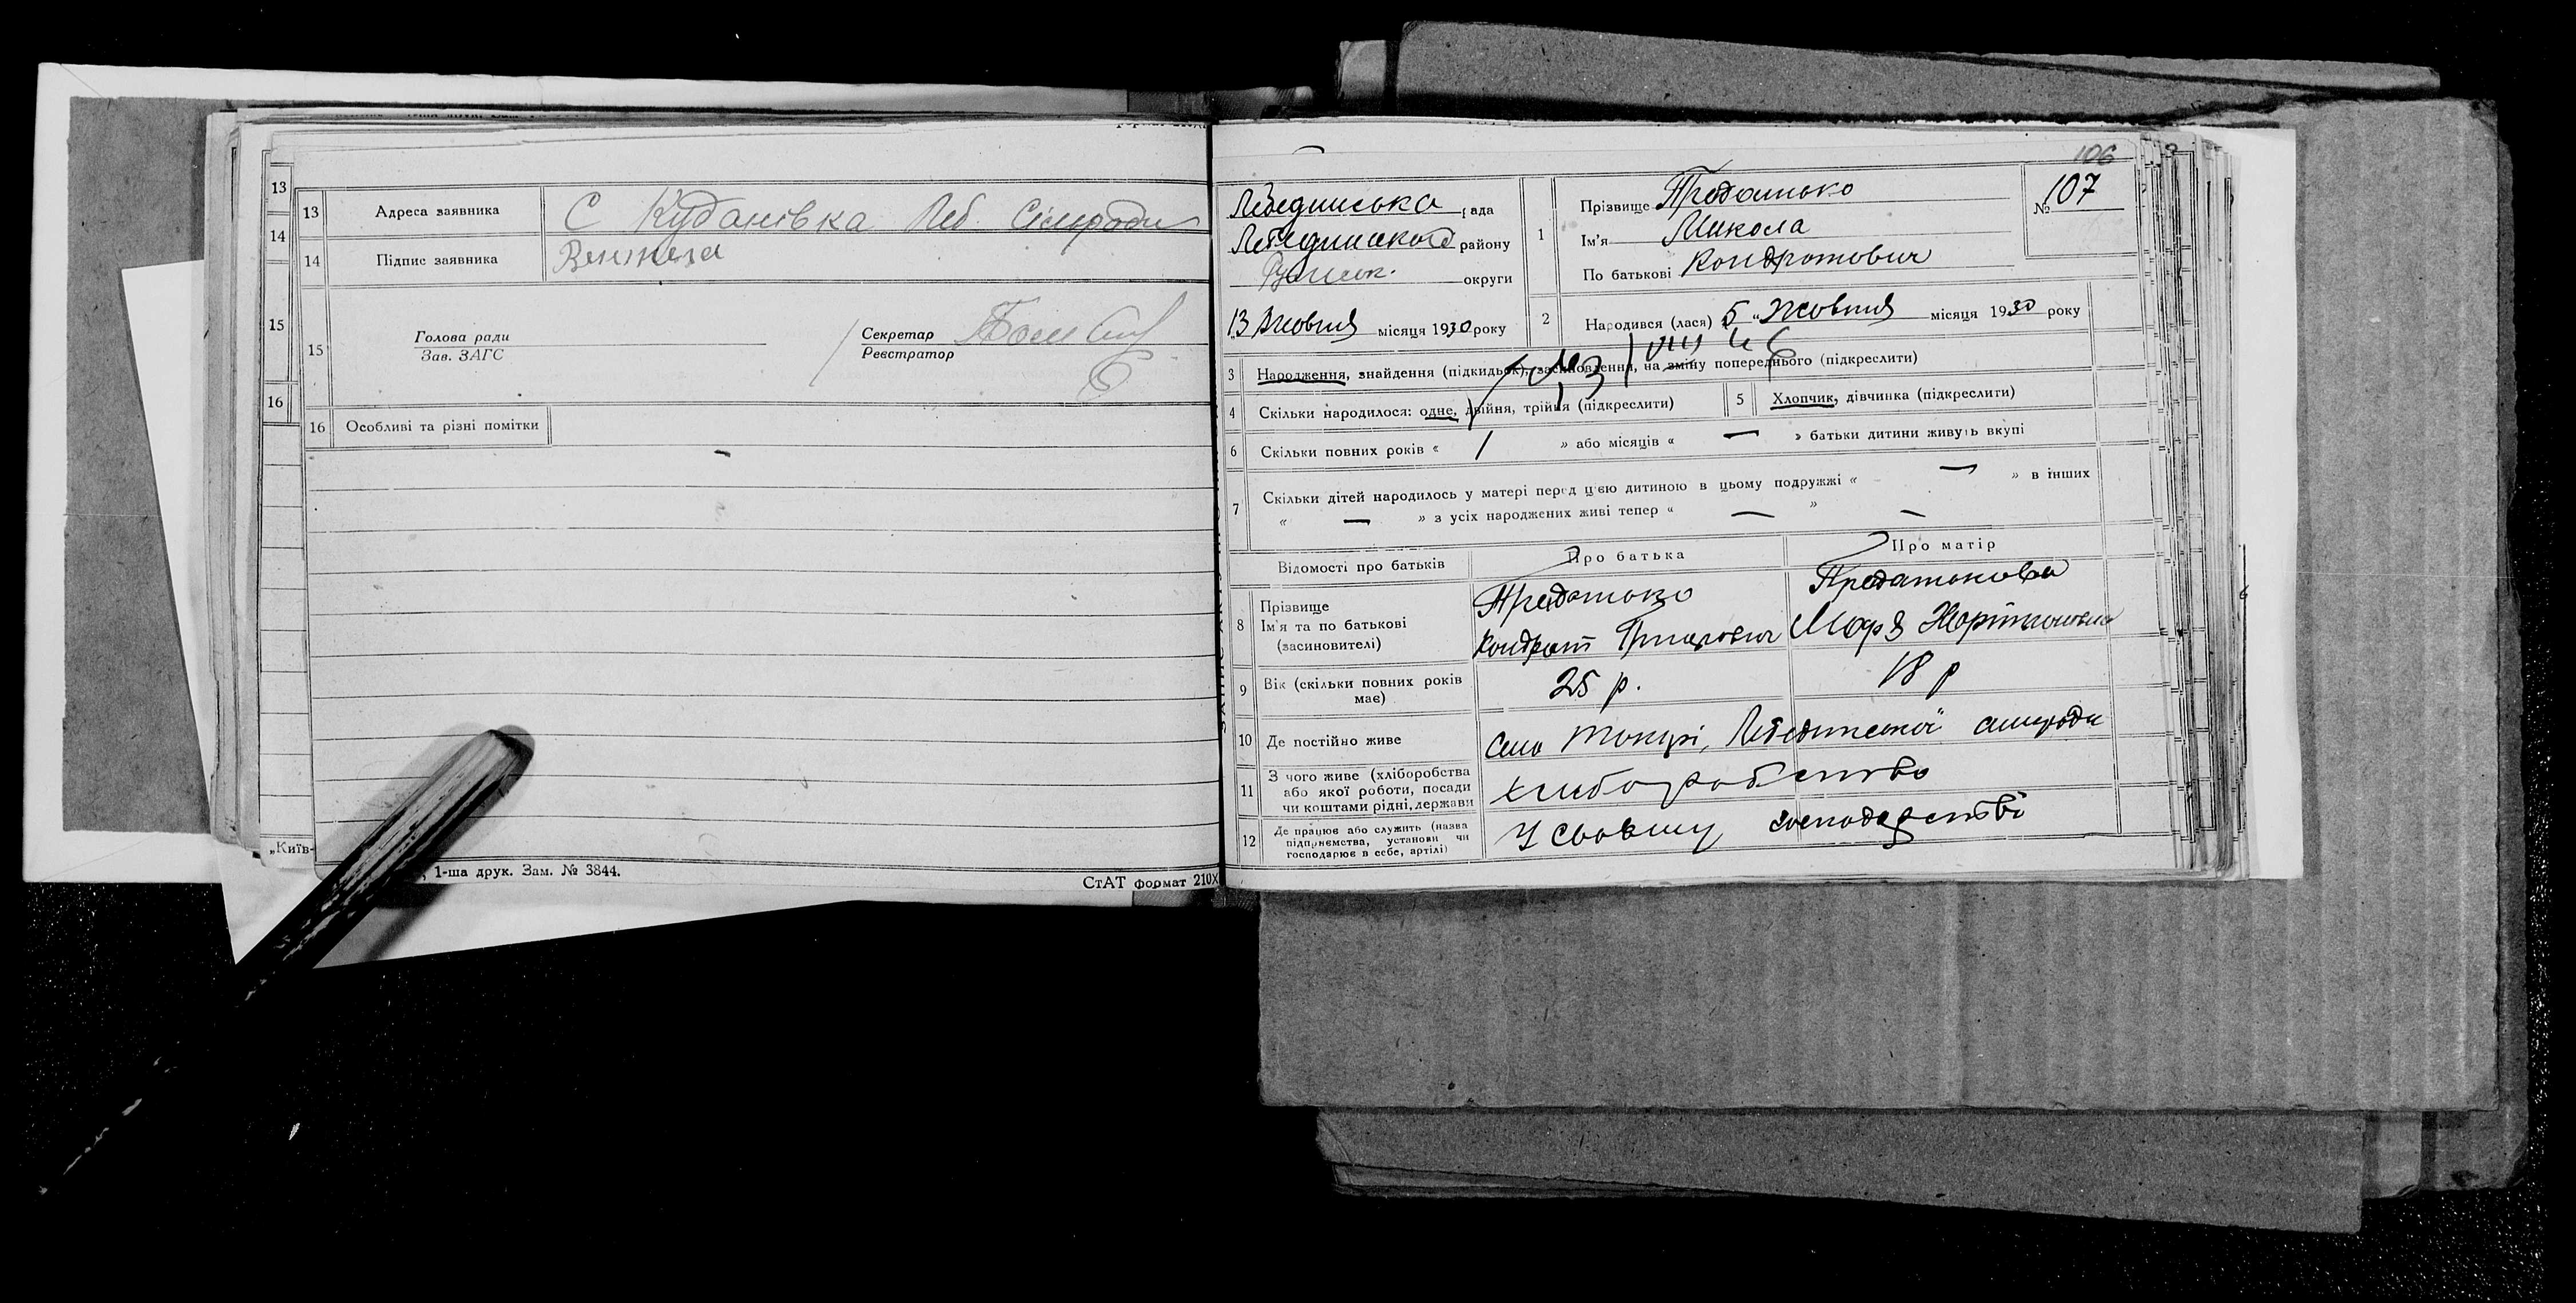 13 Адреса заявника С Куданівка Леб. Сільради
14 Підпис заявника
15 Голова ради
Зав. ЗАГС
Секретар
Реєстратор
16 Особливі та різні помітки
13
14
15
16
„Київ-
, 1-ша друк. Зам. № 3844.
СтАТ формат 210X
106
Лебединська рада
Лебединського району
округи
13 Жовтня місяця 1930 року
1 Прізвище
Ім'я Микола
По батькові Кондратович
№ 107
2 Народився (лася) „5 „ Жовтня місяця 1930 року
3 Народження, знайдення (підкидьок), засиновлення, на зміну попереднього (підкреслити)
4 Скільки народилося: одне, двійня, трійня (підкреслити)
5 Хлопчик, дівчинка (підкреслити)
6 Скільки повних років « 1 » або місяців « — » батьки дитини живуть вкупі
7 Скільки дітей народилось у матері перед цією дитиною в цьому подружжі « — » в інших
« — » з усіх народжених живі тепер « — » —
Відомості про батьків Про батька Про матір
8 Прізвище
Ім'я та по батькові
(засиновителі)
Кондрат
9 Вік (скільки повних років
має)
25 р. 18 р
10 Де постійно живе село Токарі, Лебединської сільради
11 З чого живе (хліборобства
або якої роботи, посади
чи коштами рідні, держави
хліборобство
12 Де працює або служить (назва
підприємства, установи чи
господарює в себе, артілі)
У своєму господарстві